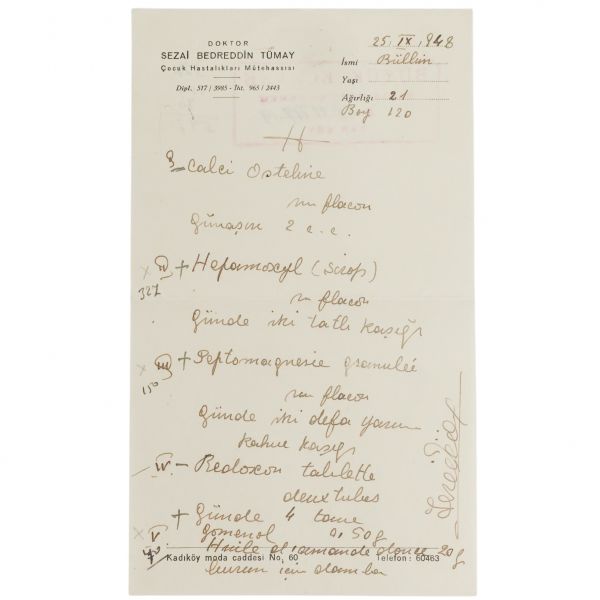 DOKTOR
SEZAİ BEDREDDİN TÜMAY
Çocuk Hastalıkları Mütehassısı
Dipl. 517 / 3985 - İht. 965 / 2443
25. IX. 948
İsmi Büllün
Yaşı
Ağırlığı 21
Boy 120
calci Osteline
un flacon
Günaşırı 2 c.c.
II + Hepamoxyl (sirop)
327
un flacon
Günde iki tatlı kaşığı
III + Peptomagnesie granulée
150
un flacon
Günde iki defa yarım
kahve kaşığı
IV - Redoxon tablette
deux tubes
+ Günde 4 tane
V gomenol 0,50 g
Huile d'amande douce 20 g
70
Kadıköy moda caddesi No. 60 Telefon: 60463
burun için damla